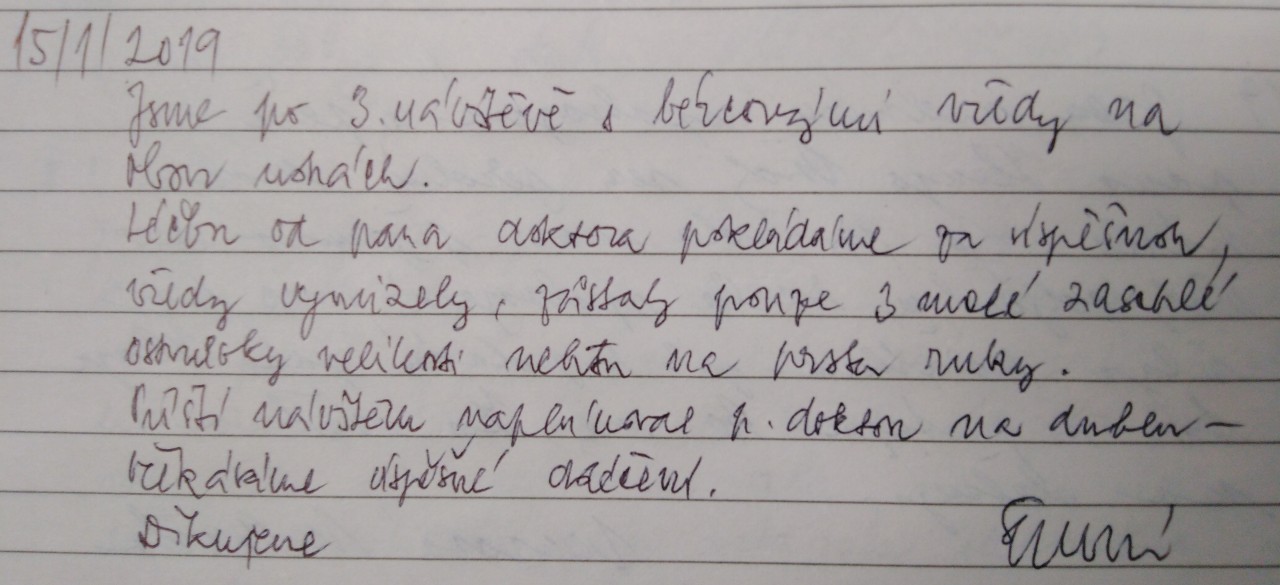 15/1/2019
Jsme po 3. návštěvě s bércovými vředy na
obou nohách.
Léčbu od pana doktora pokládáme za úspěšnou,
vředy vymizely, zůstaly pouze 3 malé zaschlé
ostrůvky velikosti nehtu na prstu ruky.
Příští návštěvu naplánoval p. doktor na duben –
očekáváme úspěšné doléčení.
Děkujeme